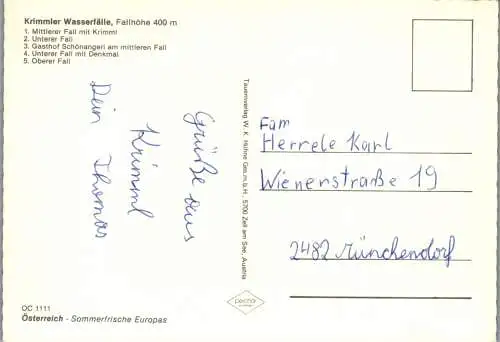 Krimmler Wasserfälle, Fallhöhe 400 m
1. Mittlerer Fall mit Krimml
2. Unterer Fall
3. Gasthof Schönangerl am mittleren Fall
4. Unterer Fall mit Denkmal
5. Oberer Fall
Grüße aus
Krimml
Dein Thomas
Tauernverlag W. K. Hühne Ges.m.b.H., 5700 Zell am See, Austria
Fam
Herrele Karl
Wienerstraße 19
2482 Münchendorf
OC 1111
Österreich - Sommerfrische Europas